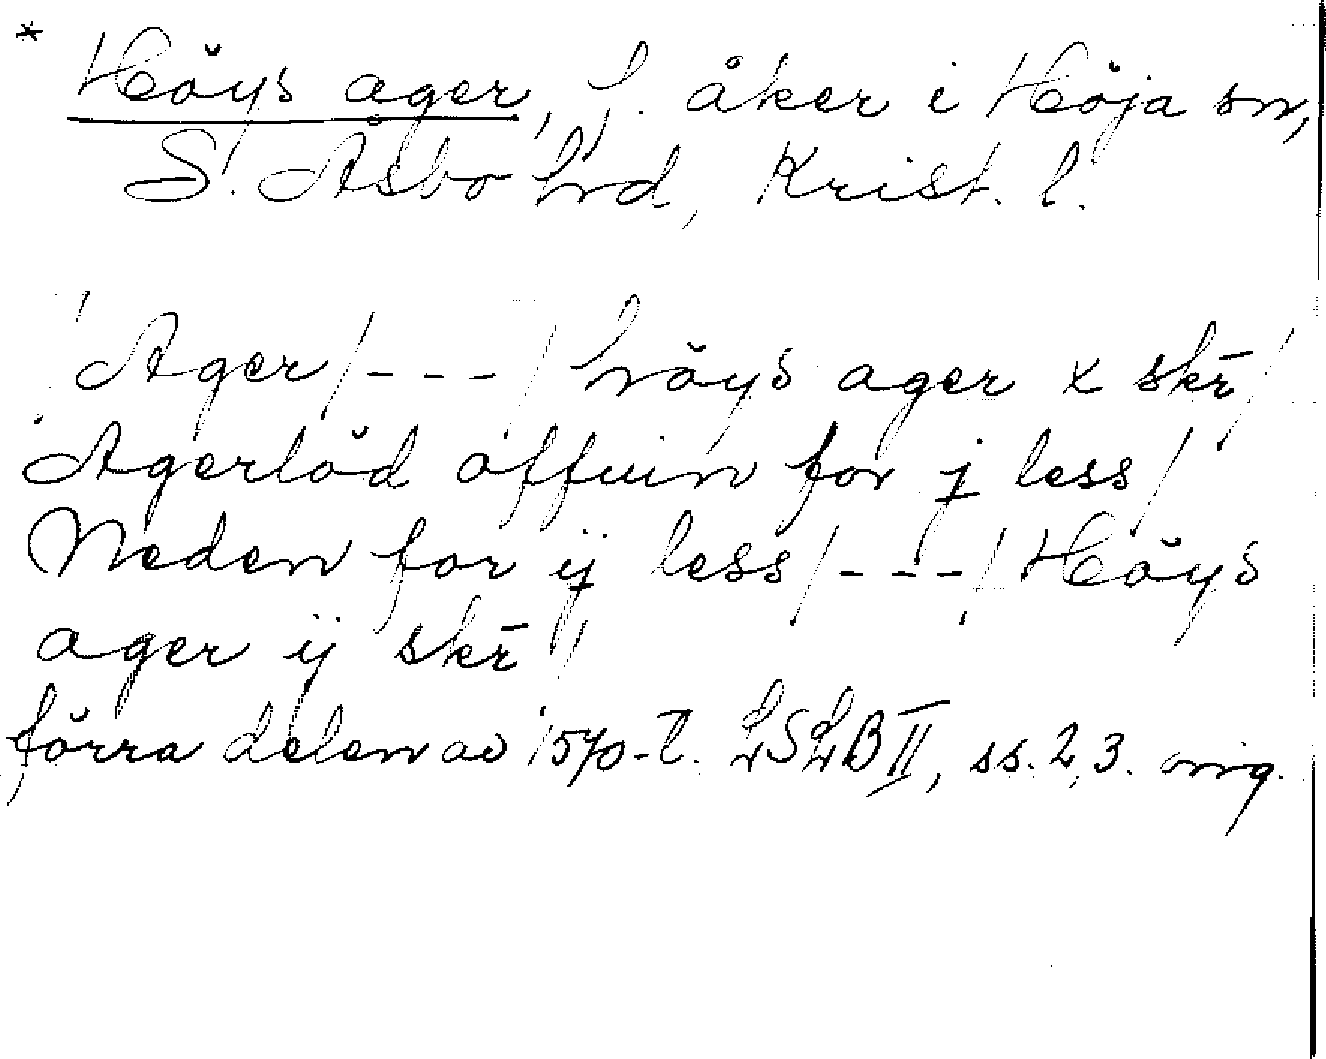 * Höys ager, f. åker i Höja sn,
S. Åsbo hrd, Krist. l.
Ager/---/ hröys ager x skr̄/
Agerlöd offuin for j less/
Neden for ij less/---/ Höys
ager ij skr̄/
förra delen av 1570-t. LSLB II, ss. 2, 3. orig.